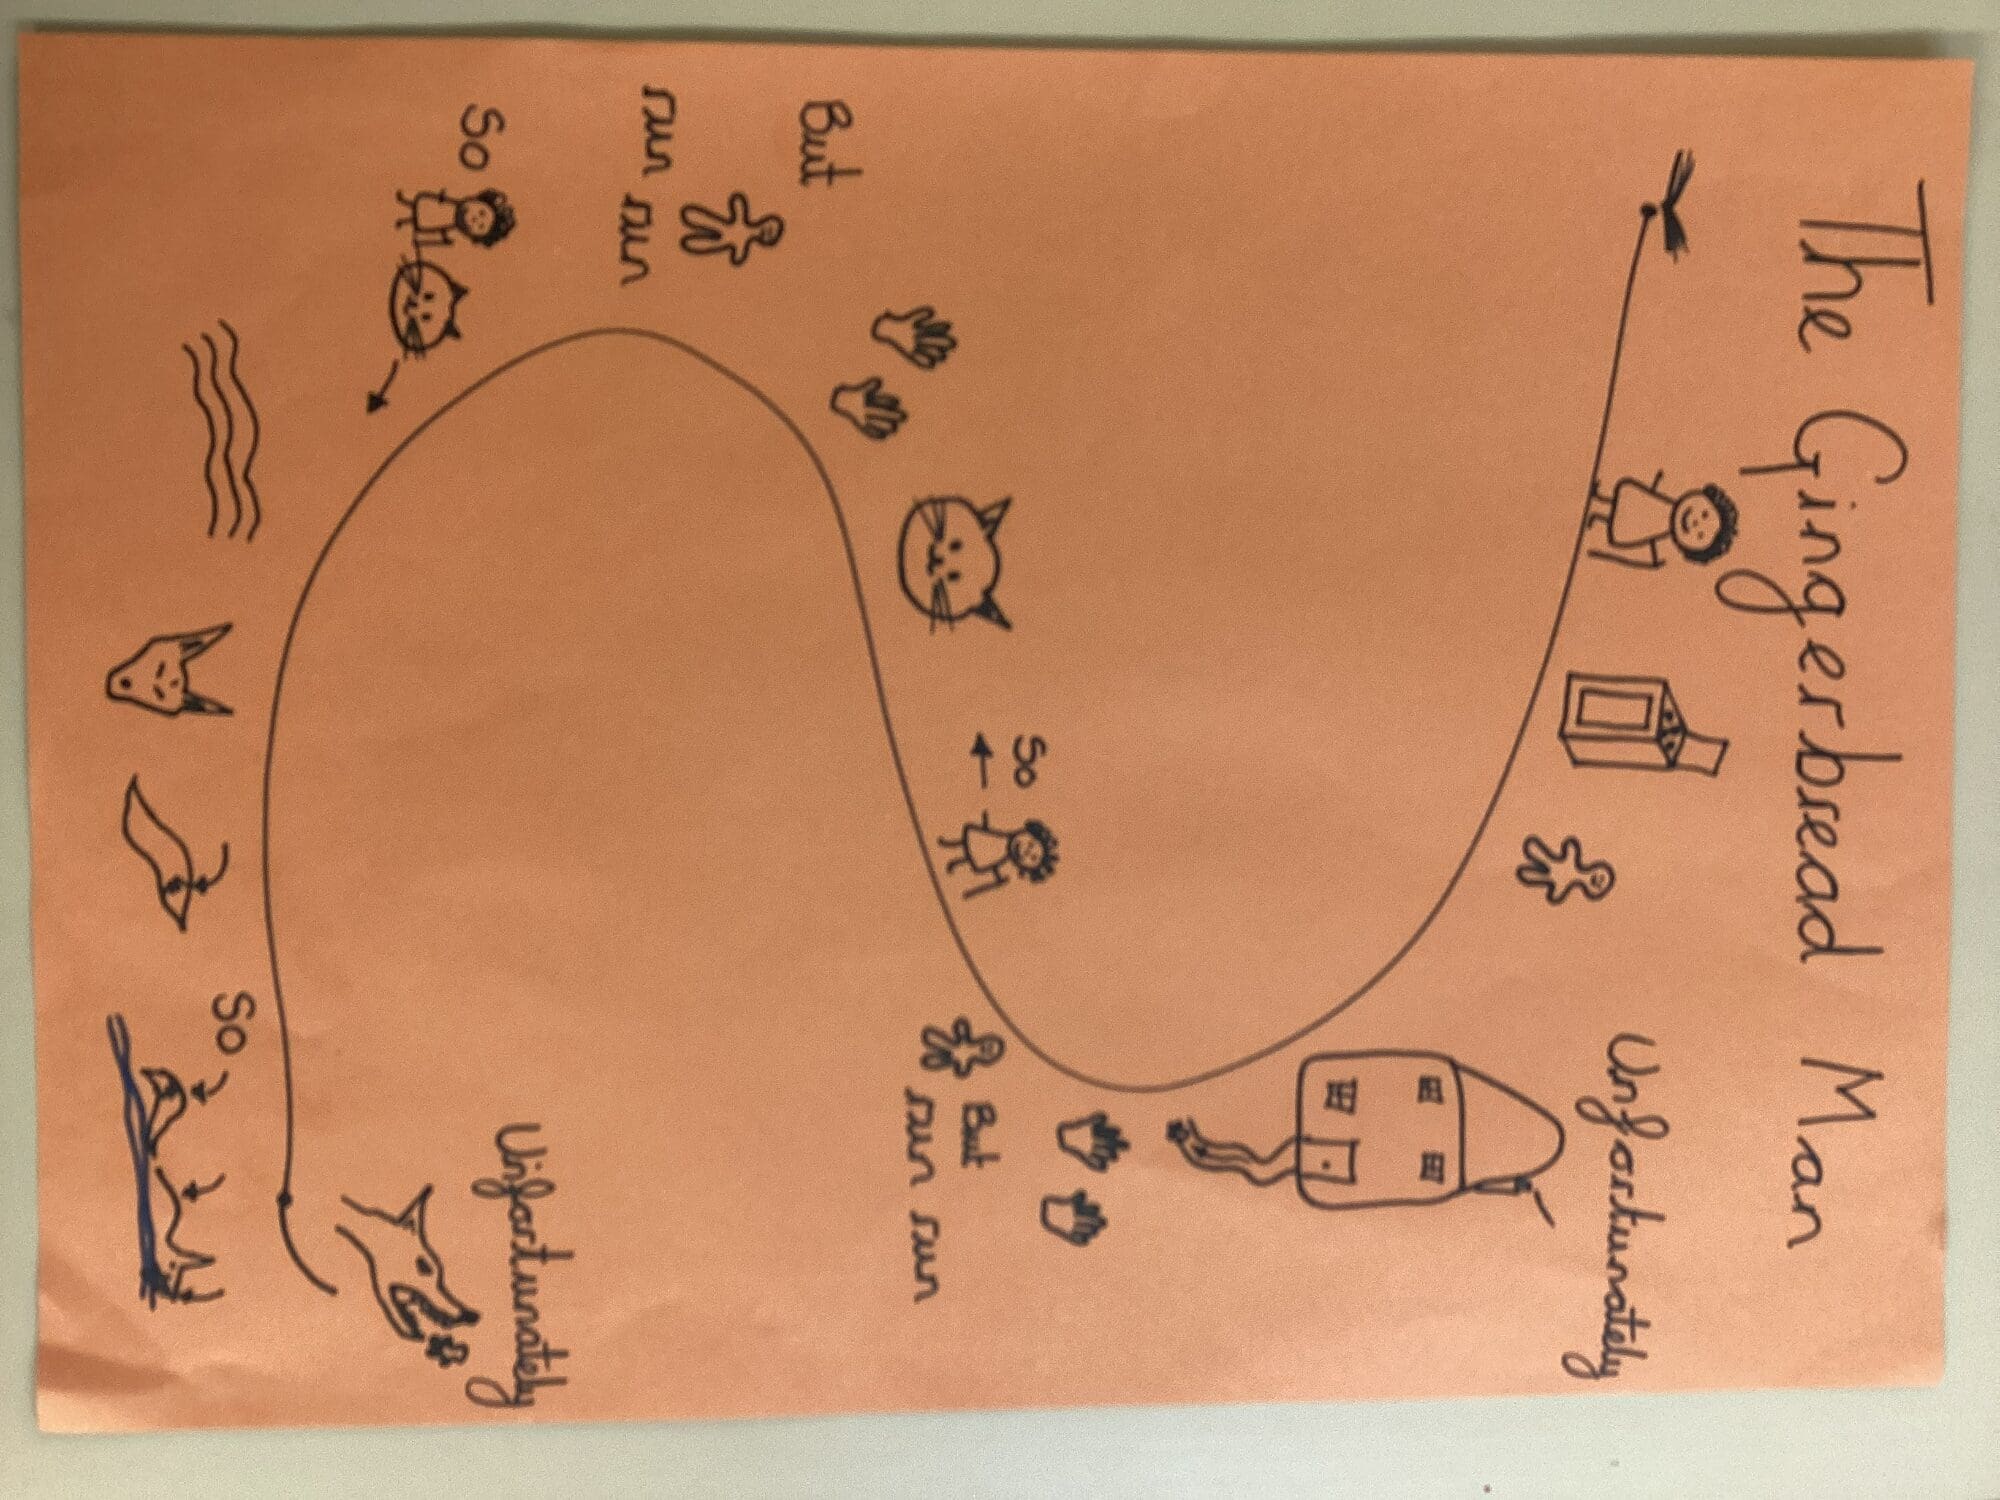 The Gingerbread Man
Unfortunately
But
run run
So
But
run run
So
So
Unfortunately